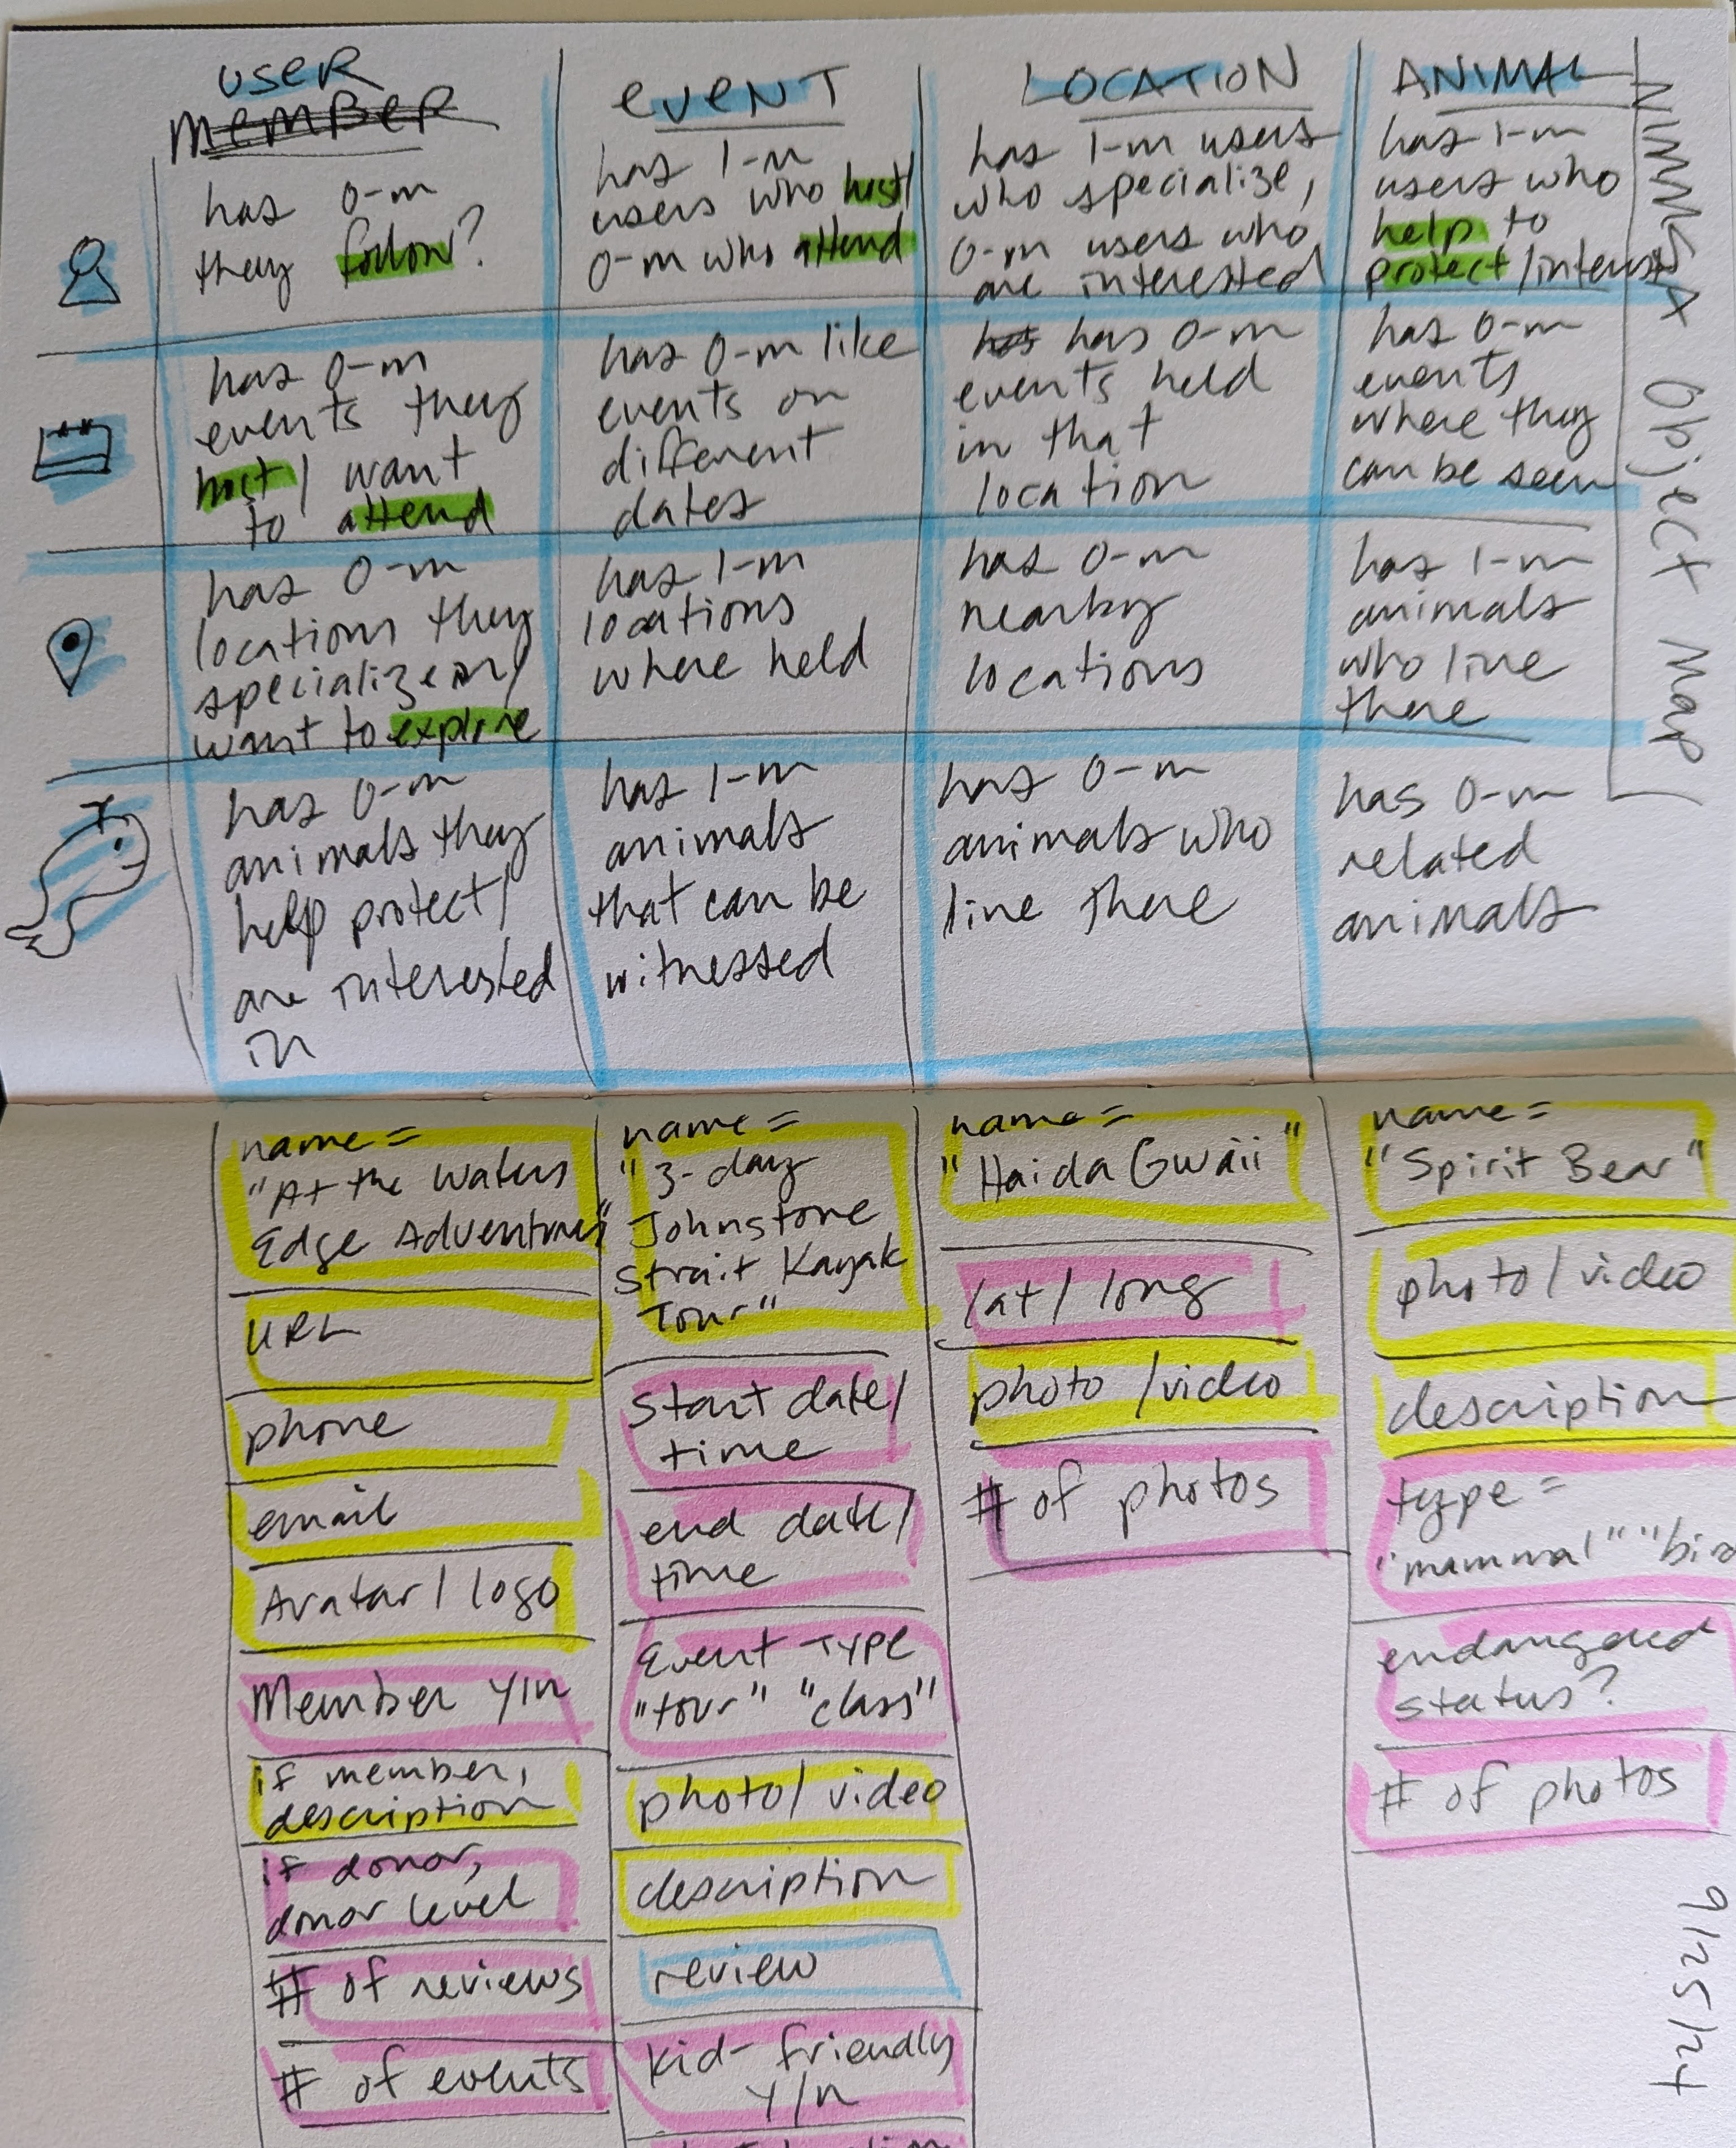 USER
MEMBER
has 0-m
they follow?
has 0-m
events they
host / want
to attend
has 0-m
locations they
specialize in/
want to explore
has 0-m
animals they
help protect/
are interested
in
EVENT
has 1-m
users who host/
0-m who attend
has 0-m like
events on
different
dates
has 1-m
locations
where held
has 1-m
animals
that can be
witnessed
LOCATION
has 1-m users
who specialize,
0-m users who
are interested
has has 0-m
events held
in that
location
has 0-m
nearby
locations
has 0-m
animals who
live there
ANIMAL
has 1-m
users who
help to
protect/interest
has 0-m
events
where they
can be seen
has 1-m
animals
who live
there
has 0-m
related
animals
Object Map
name =
"At the Waters
Edge Adventures"
URL
phone
email
Avatar / logo
Member Y/N
if member,
description
if donor,
donor level
# of reviews
# of events
name =
"3-day
Johnstone
Strait Kayak
Tour"
start date/
time
end date/
time
Event Type
"tour" "class"
photo/ video
description
review
kid-friendly
Y/n
name =
"Haida Gwaii"
lat/ long
photo /video
# of photos
name =
"Spirit Bear"
photo / video
description
type =
"mammal" "bird
endangered
status?
# of photos
9/25/24